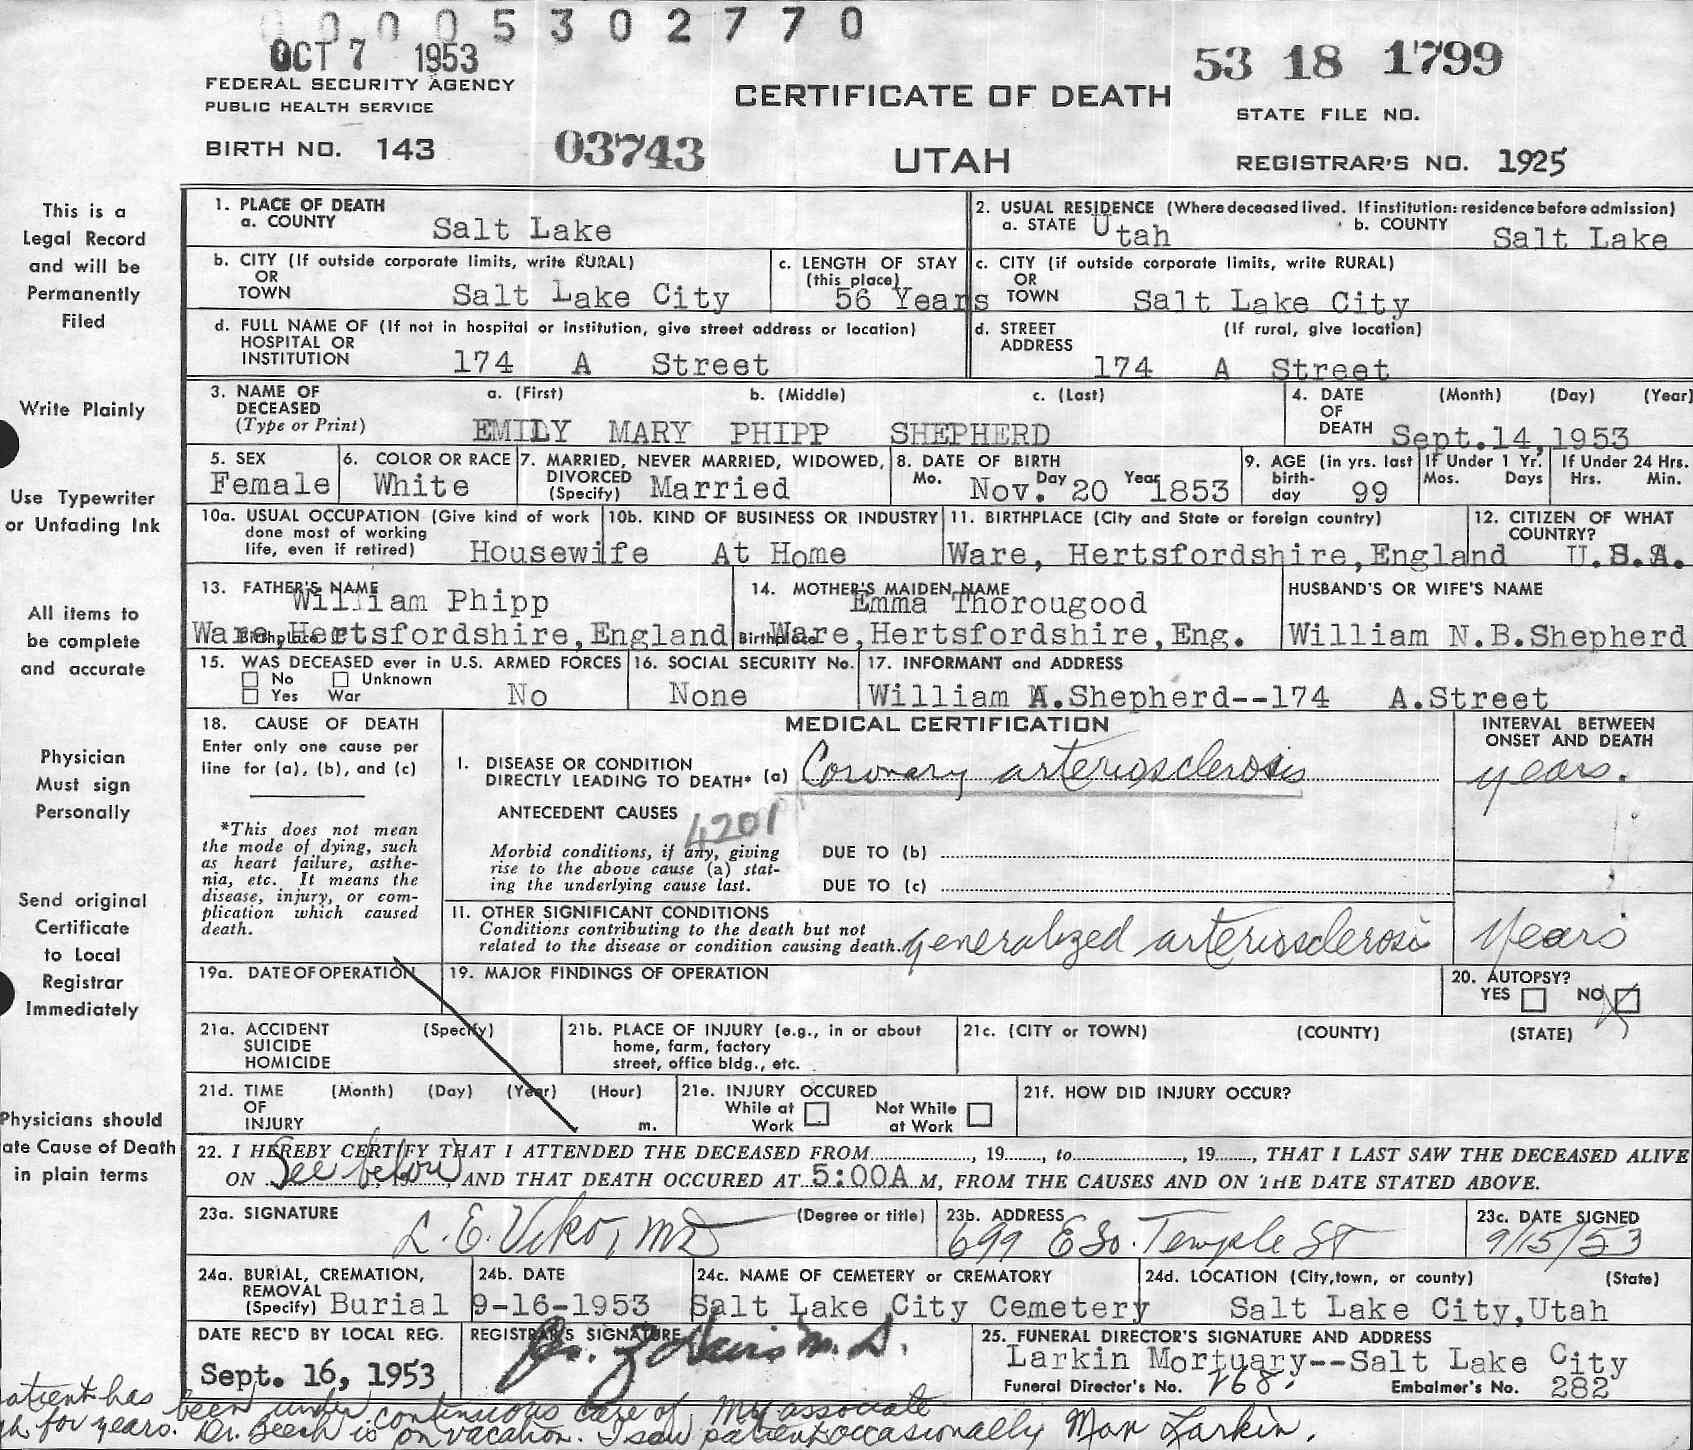 0 0 0 0 5 3 0 2 7 7 0
OCT 7 1953
53 18 1799
FEDERAL SECURITY AGENCY
PUBLIC HEALTH SERVICE
CERTIFICATE OF DEATH
STATE FILE NO.
BIRTH NO. 143 03743
UTAH
REGISTRAR'S NO. 1925
This is a
Legal Record
and will be
Permanently
Filed
Write Plainly
Use Typewriter
or Unfading Ink
All items to
be complete
and accurate
Physician
Must sign
Personally
Send original
Certificate
to Local
Registrar
Immediately
Physicians should
ate Cause of Death
in plain terms
1. PLACE OF DEATH
a. COUNTY Salt Lake
2. USUAL RESIDENCE (Where deceased lived. If institution: residence before admission)
a. STATE Utah b. COUNTY Salt Lake
b. CITY (If outside corporate limits, write RURAL)
OR
TOWN Salt Lake City
c. LENGTH OF STAY
(this place)
56 Years
c. CITY (if outside corporate limits, write RURAL)
OR
TOWN Salt Lake City
d. FULL NAME OF (If not in hospital or institution, give street address or location)
HOSPITAL OR
INSTITUTION 174 A Street
d. STREET (If rural, give location)
ADDRESS
174 A Street
3. NAME OF a. (First) b. (Middle) c. (Last)
DECEASED
(Type or Print) EMILY MARY PHIPP SHEPHERD
4. DATE (Month) (Day) (Year)
OF
DEATH Sept.14,1953
5. SEX
Female
6. COLOR OR RACE
White
7. MARRIED, NEVER MARRIED, WIDOWED,
DIVORCED
(Specify) Married
8. DATE OF BIRTH
Mo. Day Year
Nov. 20 1853
9. AGE (in yrs. last
birth-
day 99
If Under 1 Yr.
Mos. Days
If Under 24 Hrs.
Hrs. Min.
10a. USUAL OCCUPATION (Give kind of work
done most of working
life, even if retired) Housewife
10b. KIND OF BUSINESS OR INDUSTRY
At Home
11. BIRTHPLACE (City and State or foreign country)
Ware, Hertsfordshire,England
12. CITIZEN OF WHAT
COUNTRY?
U.S.A.
13. FATHER'S NAME
William Phipp
Birthplace Ware,Hertsfordshire,England
14. MOTHER'S MAIDEN NAME
Emma Thorougood
Birthplace Ware,Hertsfordshire,Eng.
HUSBAND'S OR WIFE'S NAME
William N.B.Shepherd
15. WAS DECEASED ever in U.S. ARMED FORCES
No Unknown
Yes War No
16. SOCIAL SECURITY No.
None
17. INFORMANT and ADDRESS
William A.Shepherd--174 A.Street
18. CAUSE OF DEATH
Enter only one cause per
line for (a), (b), and (c)
*This does not mean
the mode of dying, such
as heart failure, asthe-
nia, etc. It means the
disease, injury, or com-
plication which caused
death.
MEDICAL CERTIFICATION
INTERVAL BETWEEN
ONSET AND DEATH
I. DISEASE OR CONDITION
DIRECTLY LEADING TO DEATH* (a) Coronary arteriosclerosis years.
ANTECEDENT CAUSES
4201
Morbid conditions, if any, giving
rise to the above cause (a) stat-
ing the underlying cause last.
DUE TO (b)
DUE TO (c)
11. OTHER SIGNIFICANT CONDITIONS
Conditions contributing to the death but not
related to the disease or condition causing death. generalized arteriosclerosis years
19a. DATE OF OPERATION
19. MAJOR FINDINGS OF OPERATION
20. AUTOPSY?
YES NO X
21a. ACCIDENT (Specify)
SUICIDE
HOMICIDE
21b. PLACE OF INJURY (e.g., in or about
home, farm, factory
street, office bldg., etc.
21c. (CITY or TOWN) (COUNTY) (STATE)
21d. TIME (Month) (Day) (Year) (Hour)
OF
INJURY m.
21e. INJURY OCCURED
While at Not While
Work at Work
21f. HOW DID INJURY OCCUR?
22. I HEREBY CERTIFY THAT I ATTENDED THE DECEASED FROM............, 19......, to............, 19......, THAT I LAST SAW THE DECEASED ALIVE
ON See below, AND THAT DEATH OCCURED AT 5:00A M, FROM THE CAUSES AND ON THE DATE STATED ABOVE.
23a. SIGNATURE (Degree or title)
L. E. Viko, MD
23b. ADDRESS
699 E So. Temple St
23c. DATE SIGNED
9/15/53
24a. BURIAL, CREMATION,
REMOVAL
(Specify) Burial
24b. DATE
9-16-1953
24c. NAME OF CEMETERY or CREMATORY
Salt Lake City Cemetery
24d. LOCATION (City,town, or county) (State)
Salt Lake City,Utah
DATE REC'D BY LOCAL REG.
Sept. 16, 1953
REGISTRAR'S SIGNATURE
M. D.
25. FUNERAL DIRECTOR'S SIGNATURE AND ADDRESS
Larkin Mortuary--Salt Lake City
Funeral Director's No. 268. Embalmer's No. 282
atient has been under continuous care of my associate
for years. Dr. Beech is on vacation. I saw patient occasionally Larkin.